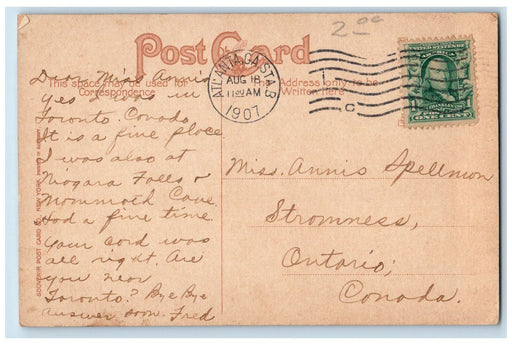 2.00
Post Card
This space may be used for
Correspondence
The Address only to be
Written here
ATLANTA, GA. STA. 3
AUG 18
11:30 AM
1907
C
UNITED STATES OF
AMERICA
FRANKLIN
ONE CENT
Dear Miss Annis
Yes I was in
Toronto. Canada
It is a fine place
I was also at
Niagara Falls &
Mammoth Cave
Had a fine time.
Your card was
all right. Are
you near
Toronto? Bye Bye
answer soon. Fred
Miss. Annis Spellmon
Stromness,
Ontario;
Canada.
SOUVENIR POST CARD CO. NEW YORK.